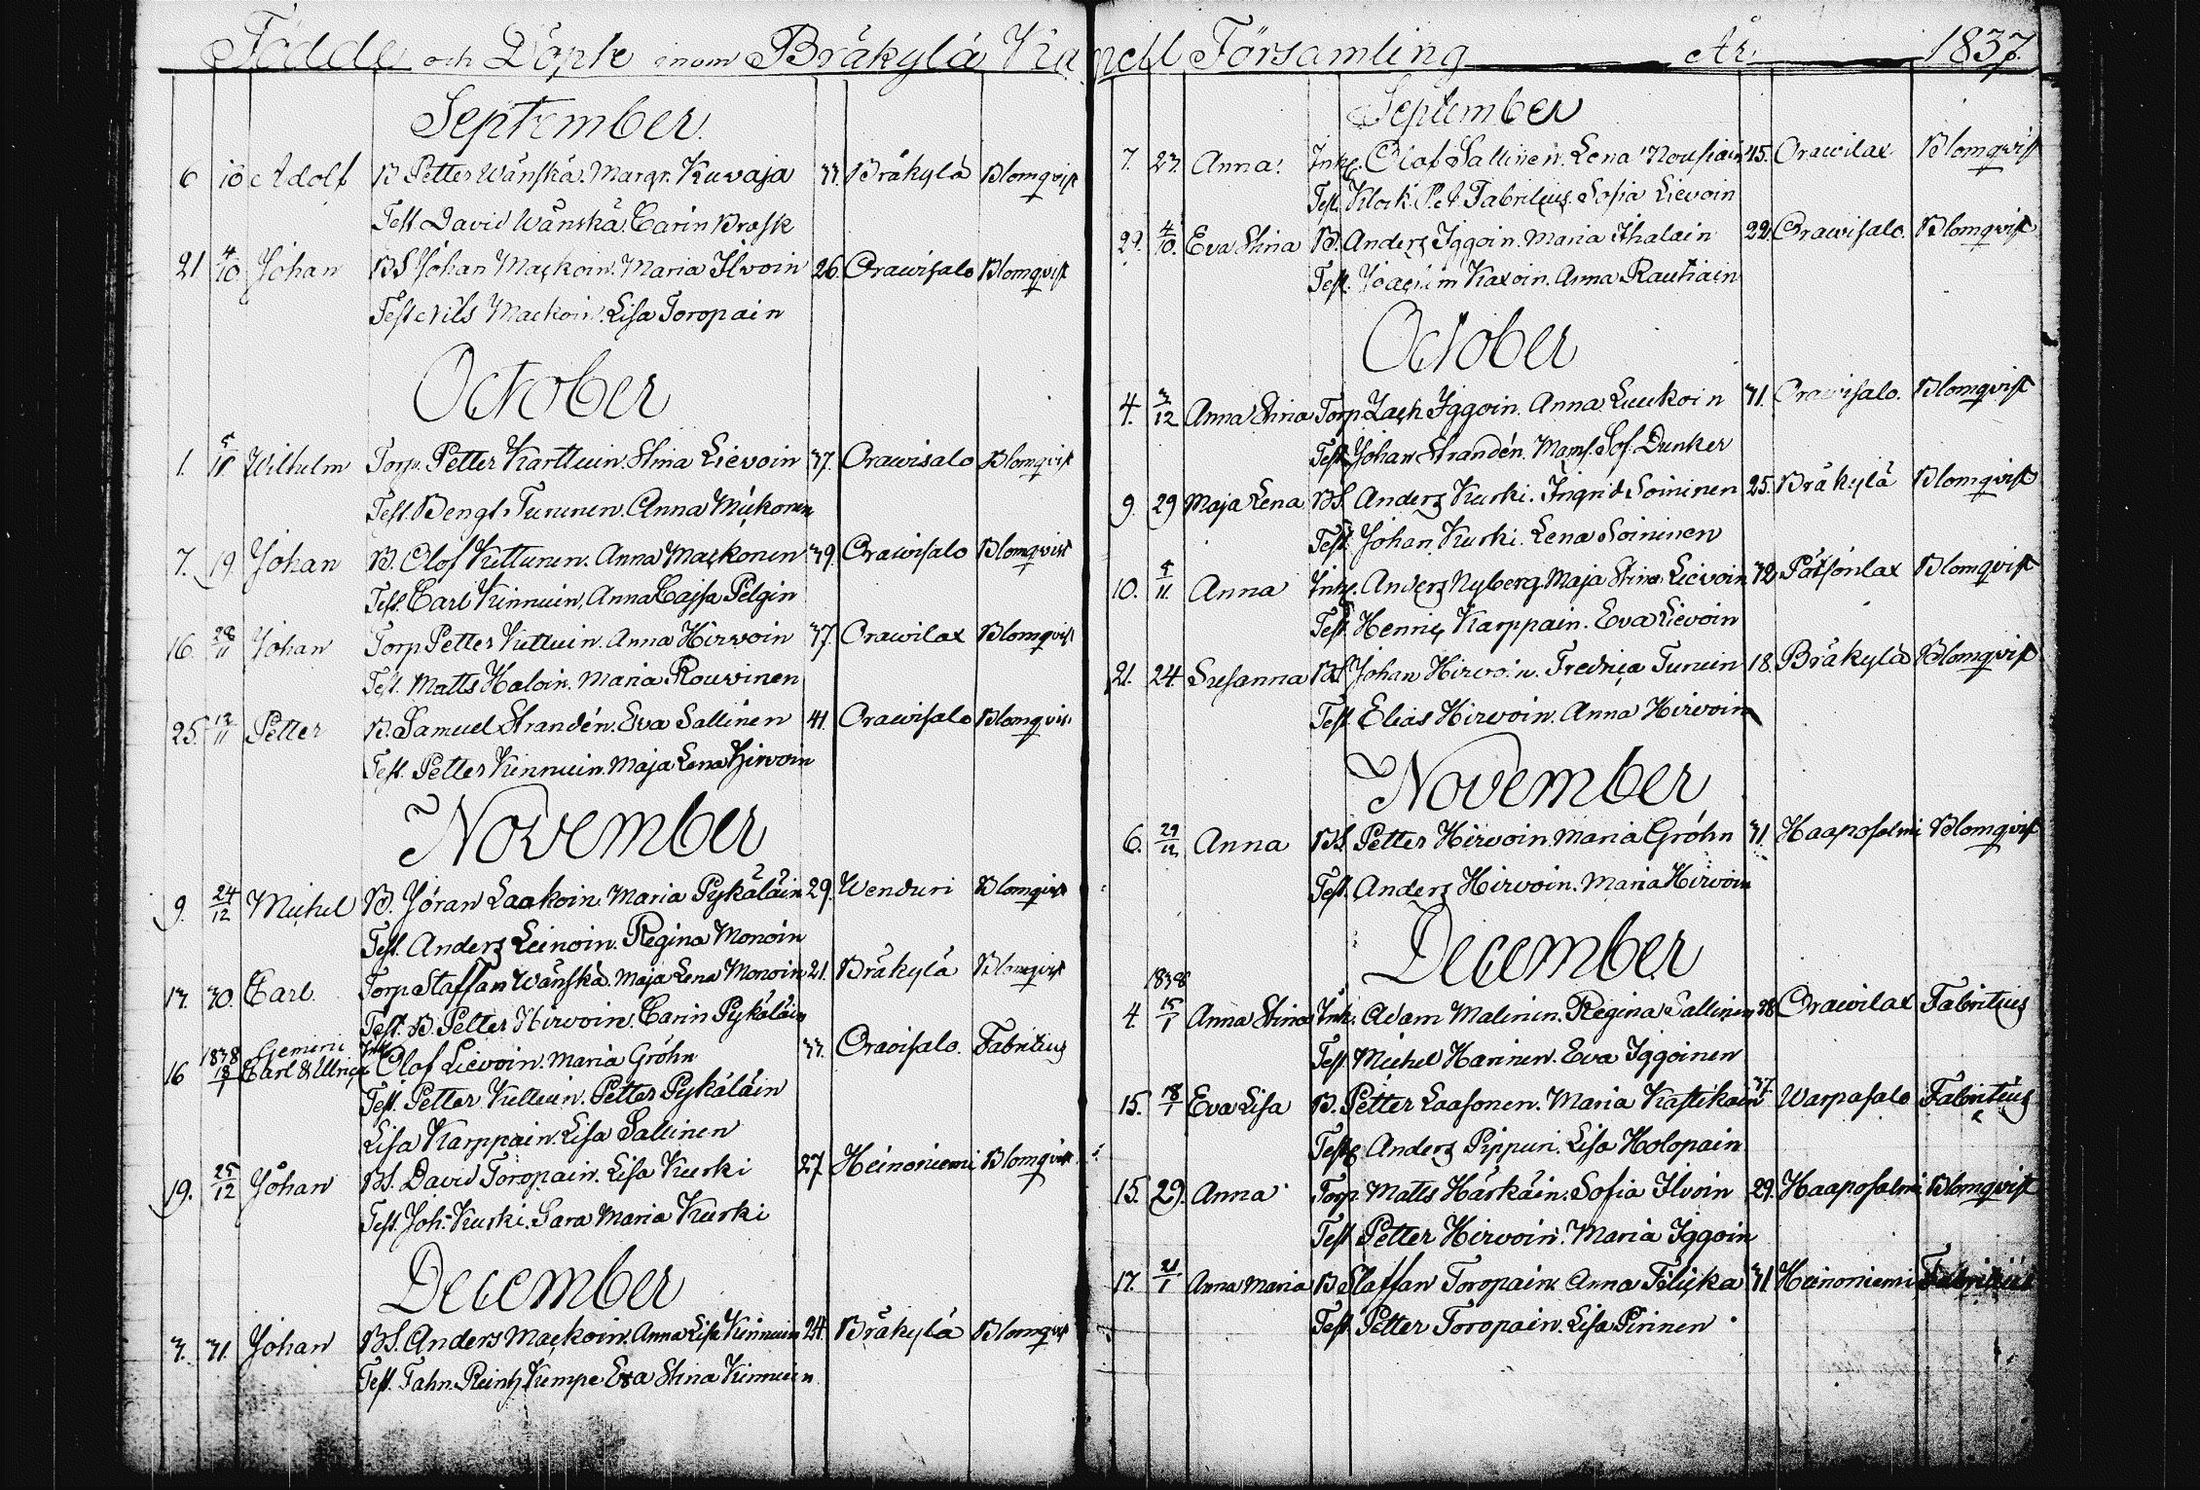 Födde och Döpte inom Bräkylä Kapell Församling År 1837.
September.
6 10 Adolf B Petter Wänskä. Margr. Kuvaja 33. Bräkylä Blomqvist
Test David Wänskä. Carin Brask
21 4/10 Johan BS Johan Mackoin. Maria Ilvoin 26. Orawisalo Blomqvist
Test Nils Mackoin. Lisa Toropain
October
1. 5/11 Wilhelm Torp. Petter Karttuin. Stina Lievoin 37. Orawisalo Blomqvist
Test. Bengt Turunen. Anna Mickonen
7. 19. Johan B. Olof Kuttunen. Anna Mackonen 39. Orawisalo Blomqvist
Test. Carl Kinnuin. Anna Cajsa Pelgin
16. 28/11 Johan Torp Petter Kuttuin. Anna Hirvoin 37. Orawilax Blomqvist
Test. Matts Haloin. Maria Rouvinen
25. 12/11 Petter B. Samuel Strandén. Eva Sallinen 41. Orawisalo Blomqvist
Test. Petter Kinnuin. Maja Lena Hirvoin
November
9. 24/12 Michel B. Jöran Laakoin. Maria Pykäläin 29. Wenduri Blomqvist
Test. Anders Leinoin. Regina Monoin
13. 30. Carl. Torp Staffan Wänskä. Maja Lena Monoin 21. Bräkylä Blomqvist
Test. B. Petter Hirvoin. Carin Pykäläin
16 1838 18/1 Gemini Carl & Ulrica Inh. Olof Lievoin. Maria Gröhn 33. Oravisalo. Fabritius
Test. Petter Kuttuin. Petter Pykäläin
Lisa Karppain. Lisa Sallinen
19. 25/12 Johan BS. David Toropain. Lisa Kurki 27 Heinoniemi Blomqvist
Test. Joh. Kurki. Sara Maria Kurki
December
3. 31. Johan BS. Anders Mackoin. Anna Lisa Kinnuin 24. Bräkylä Blomqvist
Test. Fahn. Reinh. Kempe Eva Stina Kinnuin
September
7. 23. Anna. Inh. Olof Sallinen. Lena Nousiain 45. Orawilax Blomqvist
Test. Klock. Pet. Fabritius. Sofia Lievoin
29. 4/10. Eva Stina B. Anders Iggoin. Maria Ihalain 22. Orawisalo. Blomqvist
Test. Joachim Kaxoin. Anna Rautiain
October
4. 3/12 Anna Stina Torp Zach Iggoin. Anna Luukoin 31. Orawisalo. Blomqvist
Test Johan Strandén. Mams. Sof. Dunker
9. 29 Maja Lena BS. Anders Kurki. Ingrid Soininen 25. Bräkylä Blomqvist
Test. Johan Kurki. Lena Soininen
10. 5/11 Anna Inh. Anders Nyberg. Maja Stina Lievoin 32. Potsönlax Blomqvist
Test. Henric Karppain. Eva Lievoin
21. 24. Susanna BS Johan Hirvoin. Fredrica Turuin 18. Bräkylä Blomqvist
Test. Elias Hirvoin. Anna Hirvoin
November
6. 29/12 Anna BS. Petter Hirvoin. Maria Gröhn 31. Haaposalmi Blomqvist
Test. Anders Hirvoin. Maria Hirvoin
December
1838
4. 15/1 Anna Stina Inh. Adam Malinin. Regina Sallinen 38 Orawilax Fabritius
Test Michel Harinen. Eva Iggoinen
15. 18/1 Eva Lisa B. Petter Laasonen. Maria Kastikain 37 Warpasalo Fabritius
Test. Anders Pippuri. Lisa Holopain
15. 29. Anna Torp. Matts Härkäin. Sofia Ilvoin 29. Haaposalmi Blomqvist
Test. Petter Hirvoin. Maria Iggoin
17. 21/1 Anna Maria B Staffan Toropain. Anna Filicka 31. Heinoniemi Fabritius
Test. Petter Toropain. Lisa Pirinen